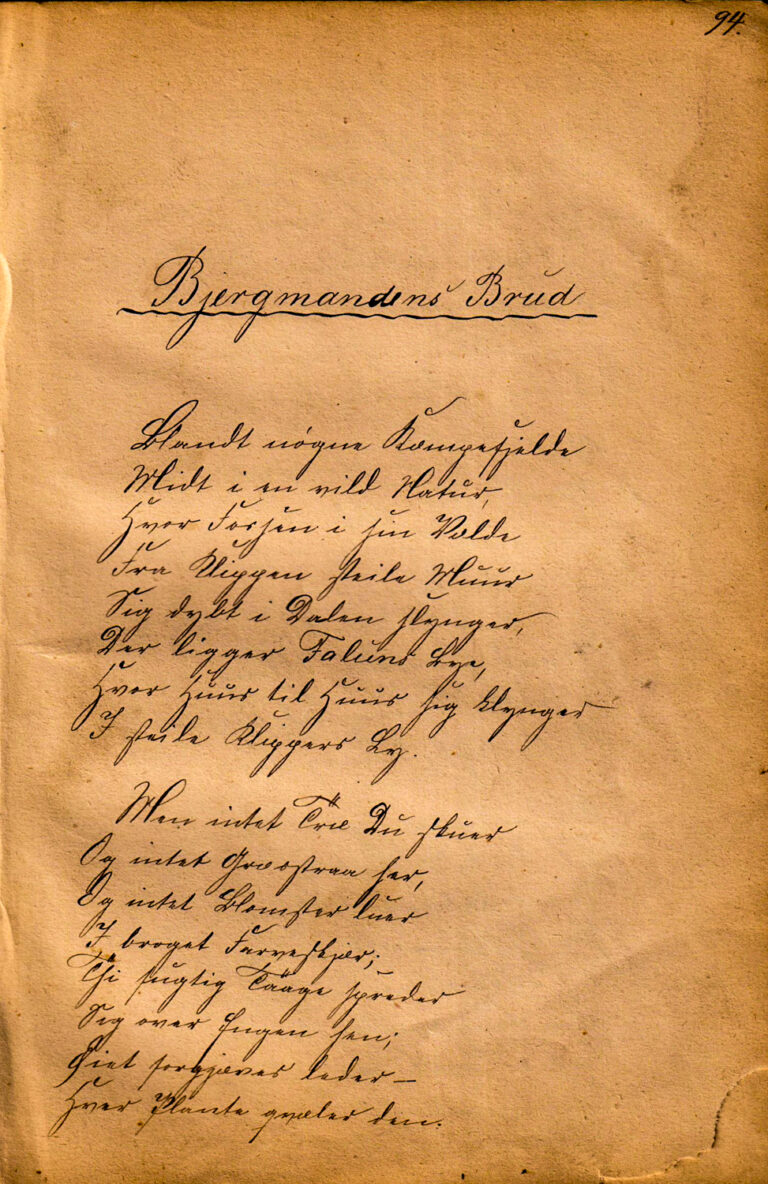 94.
Bjergmandens Brud
Blandt nøgne Kæmpefjelde
Midt i en vild Natur,
Hvor Fossen i sin Vælde
Fra Klippen steile Muur
Sig dybt i Dalen slynger,
Der ligger Faluns Bye,
Hvor Huus til Huus sig klynger
I steile Klippers Ly.
Men intet Træ Du skuer
Og intet Græsstraa her,
Og intet Blomster luer
I broget Farveskjær;
Thi fugtig Taage spreder
Sig over Engen hen;
Øiet forgjæves leder—
Hver Plante qvæler den.